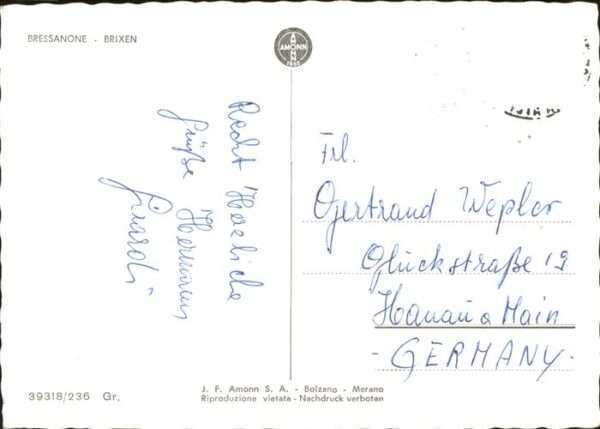 BRESSANONE - BRIXEN
AMONN
Recht Herzliche
Grüße Hermann
Frl.
Gertraud Wepler
Glückstraße 19
Hanau a Main
- GERMANY -
39318/236 Gr.
J. F. Amonn S. A. - Bolzano - Merano
Riproduzione vietata - Nachdruck verboten